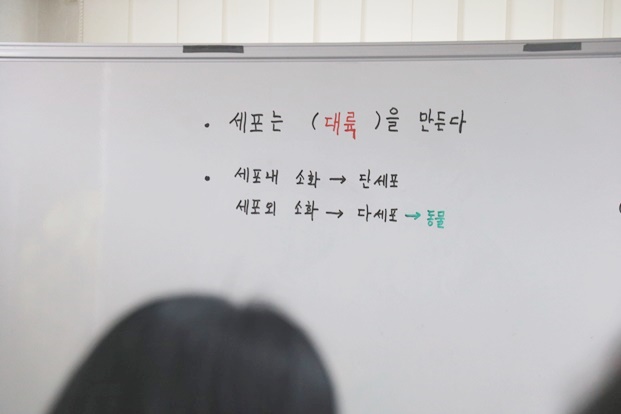 • 세포는 (대륙)을 만든다
• 세포내 소화 → 단세포
세포외 소화 → 다세포 → 동물